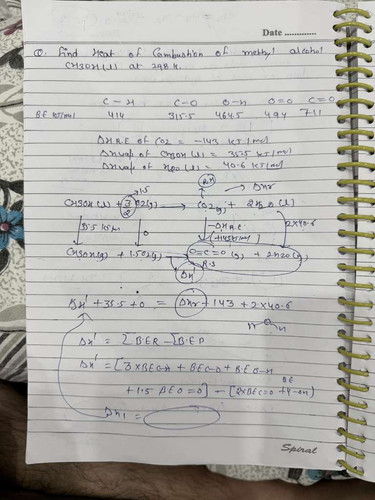 Date .............
Q. Find Heat of Combustion of methyl alcohol
CH3OH(l) at 298 K.
C-H C-O O-H O=O C=O
BE KJ/mol 414 315.5 464.5 494 711
ΔH R.E of CO2 = -143 KJ/mol
ΔHvap of CH3OH(l) = 35.5 KJ/mol
ΔHvap of H2O(l) = 40.6 KJ/mol
1.5 R.H → ΔHr
CH3OH(l) + 3/2 O2(g) → CO2(g) + 2H2O(l)
↓ 35.5 ↓ 0 ↓ -ΔH R.E. (+143 KJ/mol) ↓ 2×40.6
CH3OH(g) + 1.5O2(g) → O=C=O(g) + 2H2O(g)
ΔH' R.S
ΔH' + 35.5 + 0 = ΔHr + 143 + 2×40.6
H O H
ΔH' = ΣB.ER - ΣB.EP
ΔH' = [3×BEC-H + BEC-O + BEO-H
+ 1.5 BEO=O] - [2×BEC=O + 4 BE O-H]
ΔH1 =
Spiral